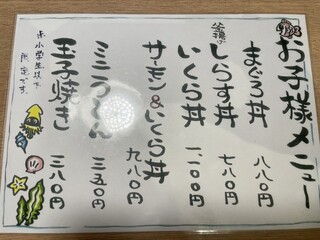 お子様メニュー
まぐろ丼 八八〇円
釜揚げしらす丼 七八〇円
いくら丼 一、一〇〇円
サーモン&いくら丼 九八〇円
ミニうどん 三五〇円
玉子焼き 三八〇円
※小学生以下
限定です。